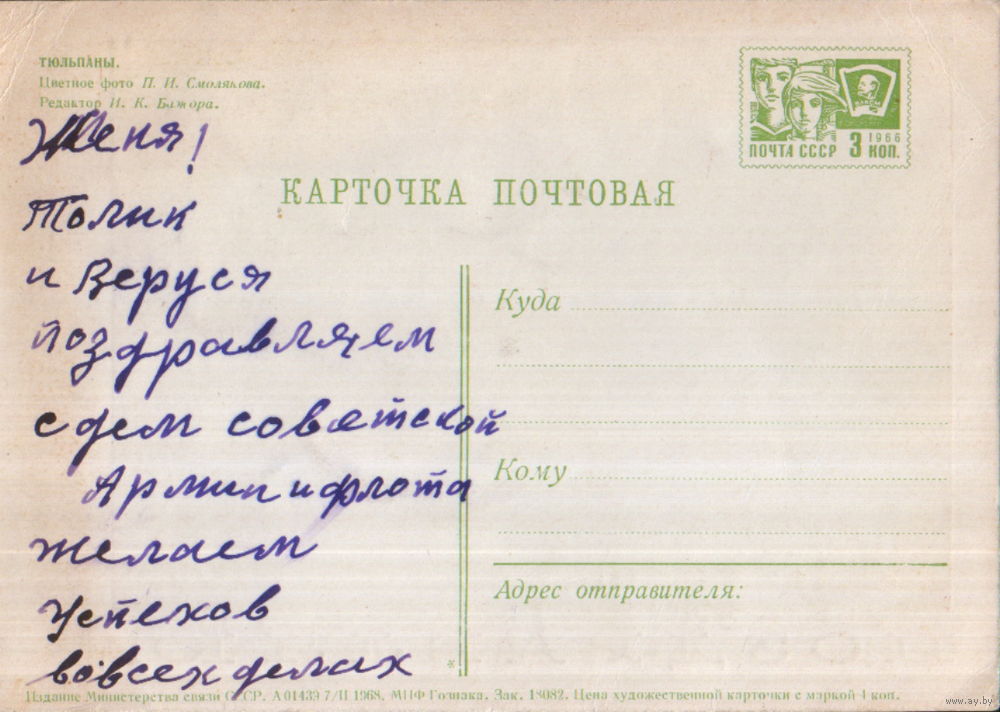 ТЮЛЬПАНЫ.
Цветное фото П. И. Смолякова.
Редактор И. К. Бажора.
ПОЧТА СССР 3 КОП.
1966
ВЛКСМ
КАРТОЧКА ПОЧТОВАЯ
Женя!
Толик
и Веруся
поздравляем
с дем советской
Армии и флота
желаем
успехов
вовсех делах
Куда
Кому
Адрес отправителя:
Издание Министерства связи СССР. А 01439 7/II 1968. МПФ Гознака. Зак. 18082. Цена художественной карточки с маркой 4 коп.
www.ay.by